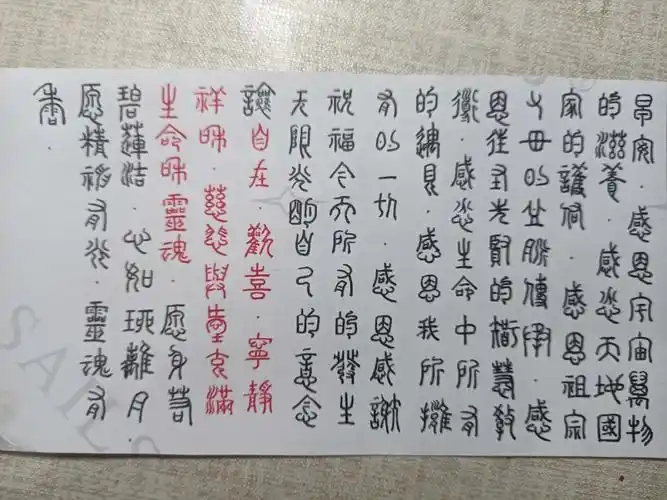 早安．感恩宇宙萬物
的滋養．感恩天地國
家的護佑．感恩祖宗
父母的血脈傳承．感
恩往聖先賢的智慧教
導．感恩生命中所有
的遇見．感恩我所擁
有的一切．感恩感謝
祝福今天所有的發生
无限光明自己的意念
讓自在．歡喜．寧靜
祥和．慈悲與愛充滿
生命和靈魂．愿身若
碧蓮洁．心如琉離月．
愿精有光．靈魂有
香．